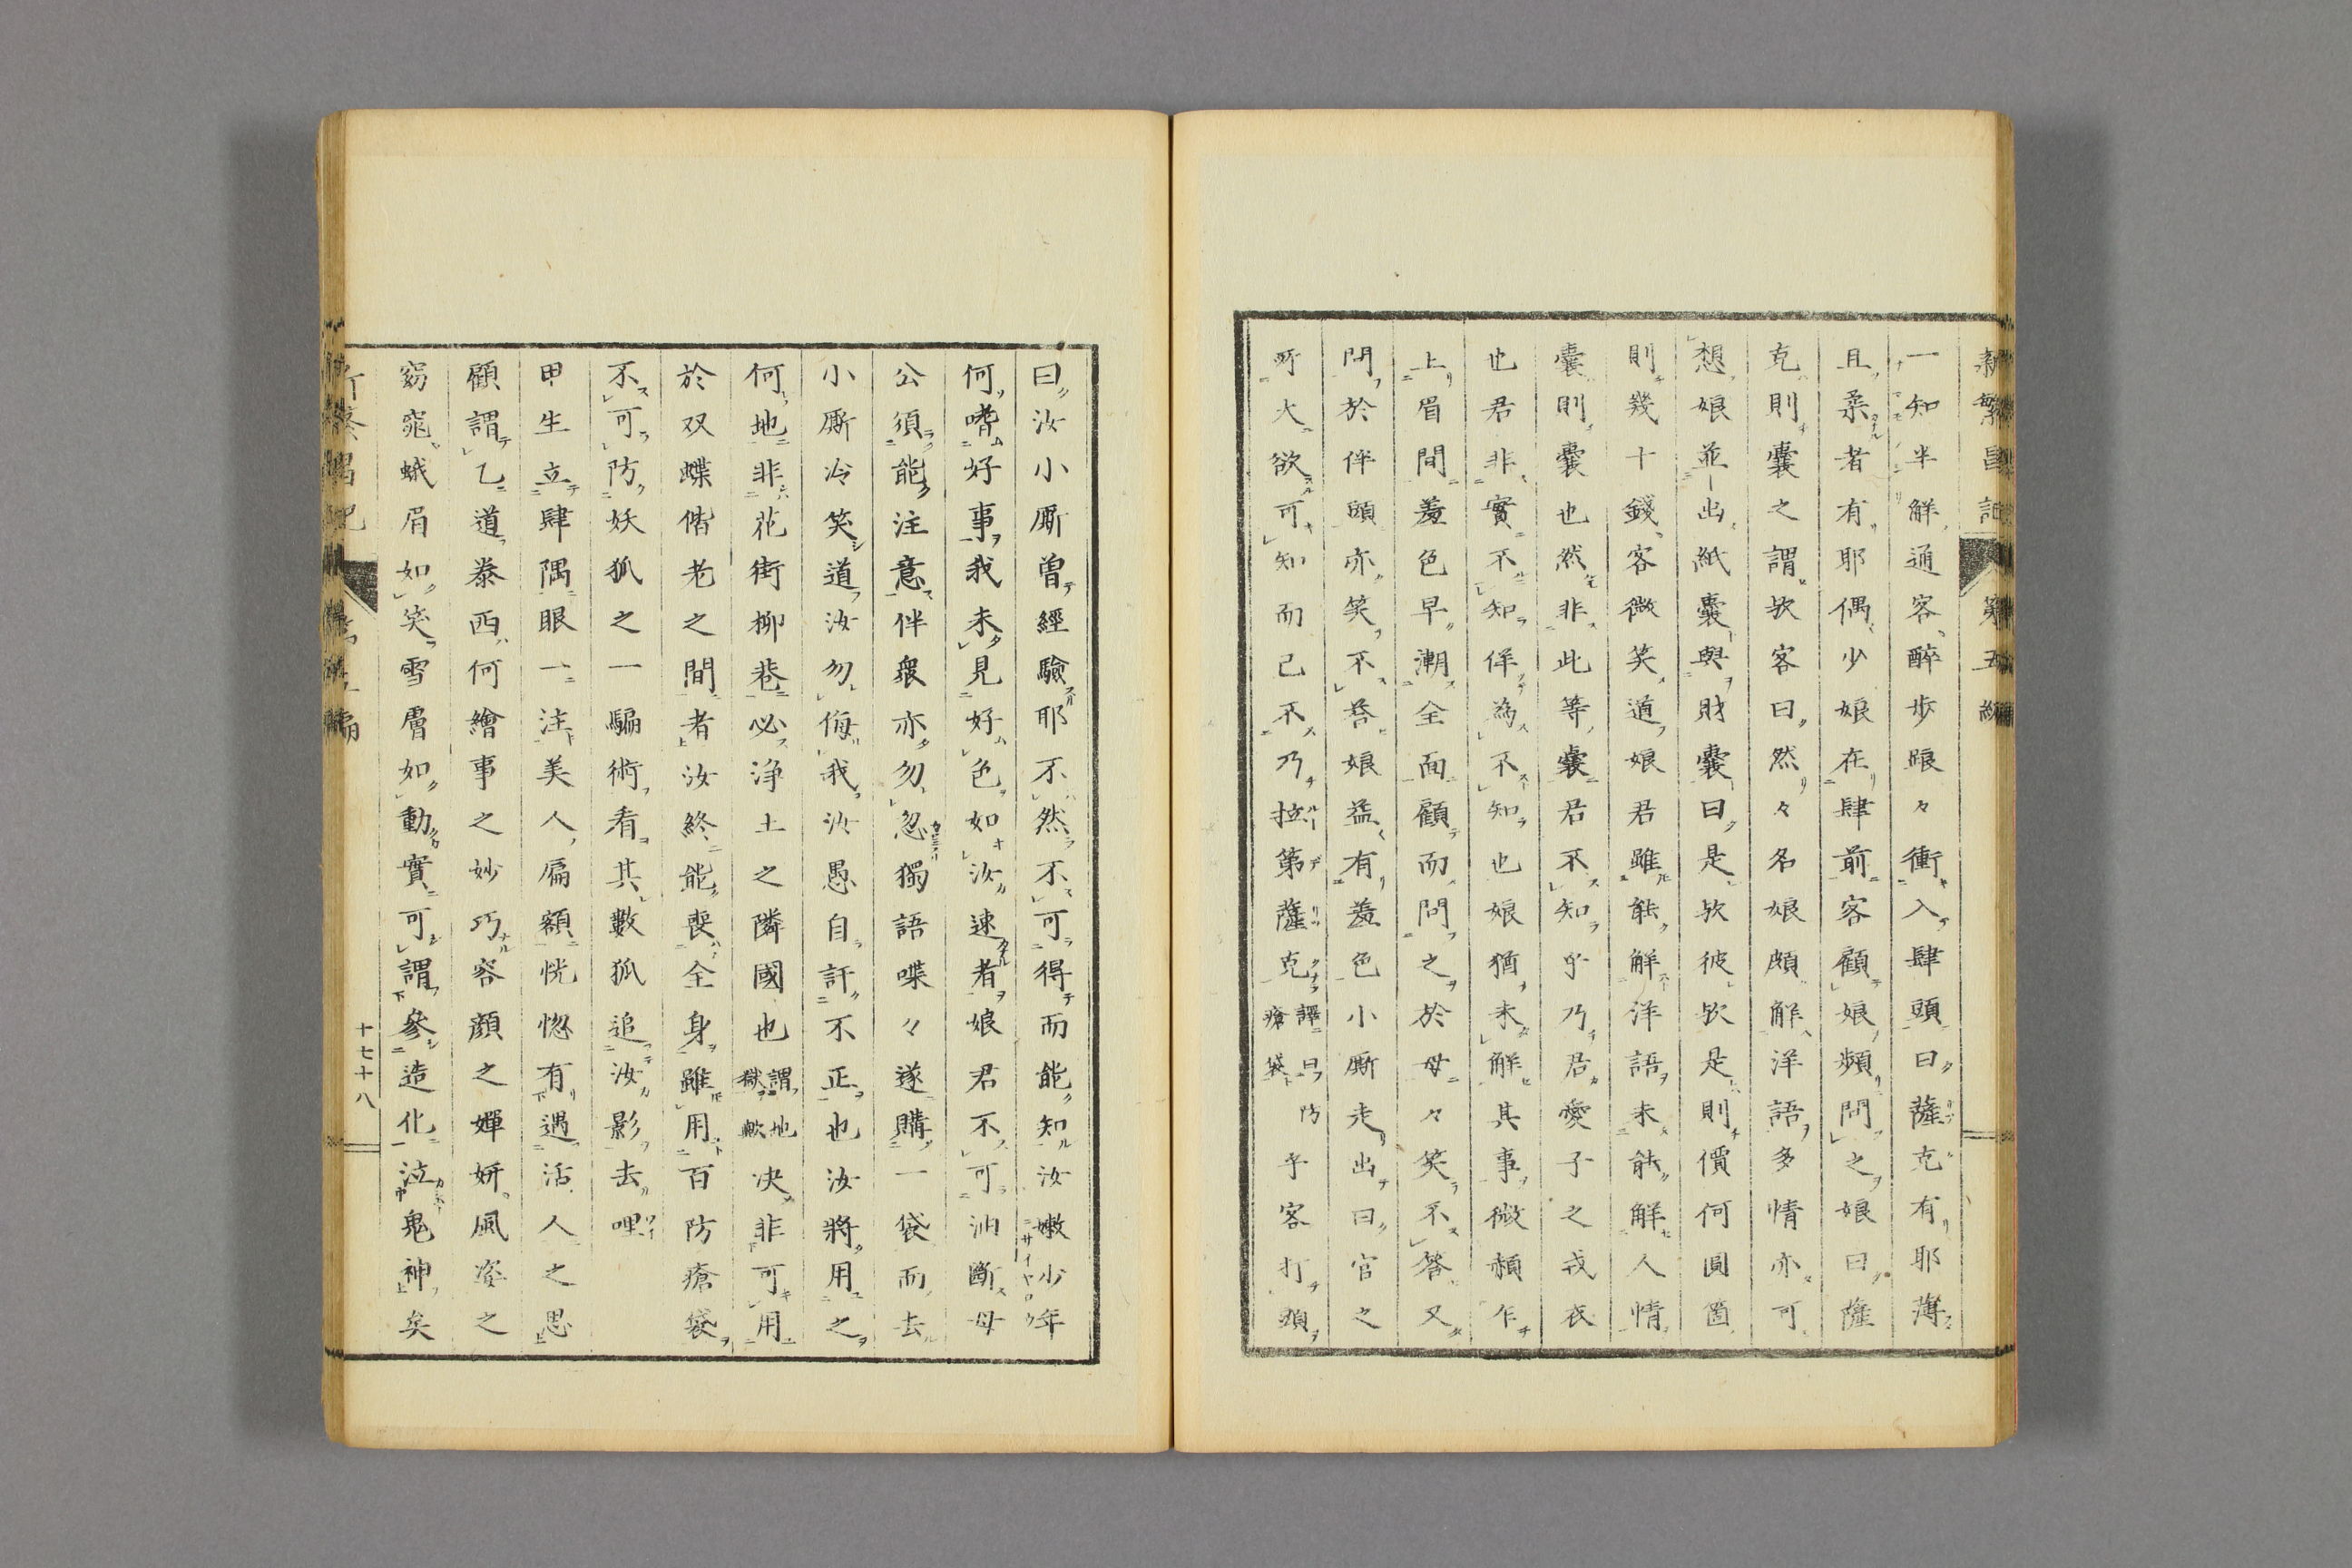 新繁昌記 第五編
一知半解通客、醉步踉々衝入肆頭曰薩克有耶薄
且柔者有耶偶少娘在肆前客顧娘頻問之娘曰薩
克則囊之謂歟客曰然々名娘頗解洋語多情亦可
想娘並出紙囊與財囊曰是歟彼歟是則價何圓箇
則幾十錢、客微笑道娘君雖能解洋語未能解人情
囊則囊也然非此等囊君不知乎乃君愛子之戎衣
也君非實不知佯為不知也娘猶未解其事微頳乍
上眉間羞色早潮全面顧而問之於母々笑不答又
問於伴頭亦笑不答娘益有羞色小廝走出曰官之
所大欲可知而已不乃拉第薩克譯曰防瘡袋乎客打頭
曰汝小廝曽經驗耶不然不可得而能知汝嫩少年
何嗜好事我未見好色如汝速者娘君不可油斷母
公須能注意伴衆亦勿忽獨語喋々遂購一袋而去
小廝冷笑道汝勿侮我汝愚自訐不正也汝將用之
何地非花街柳巷必淨土之隣國也謂地獄歟决非可用
於双蝶偕老之間者汝終能喪全身雖用百防瘡袋
不可防妖狐之一騙術看其數狐追汝影去哩
甲生立肆隅眼一注美人扁額恍惚有遇活人之思
顧謂乙道泰西何繪事之妙巧容顏之嬋妍風姿之
窈窕蛾眉如笑雪膚如動實可謂參造化泣鬼神矣
十七十八